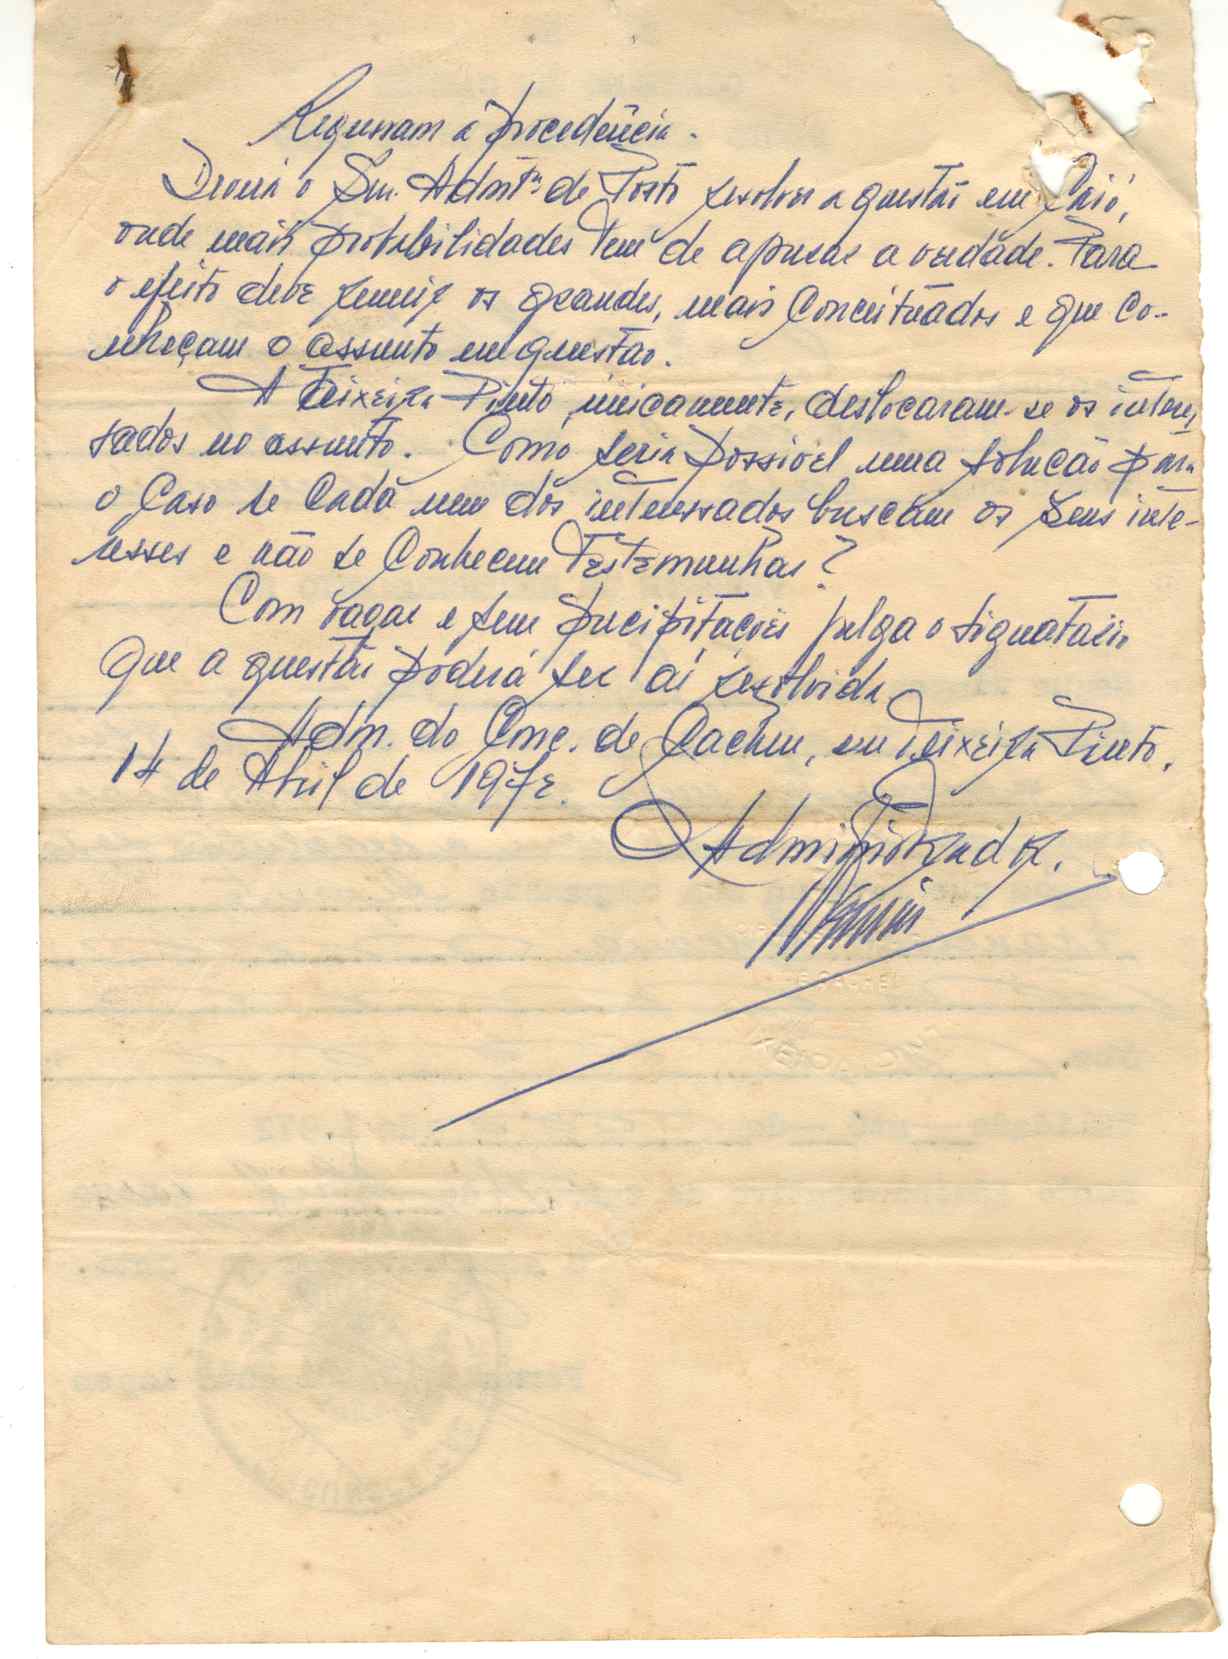 Regressam à procedência.
Deverá o Snr. Admtr. de Posto resolver a questão em Caió,
onde mais probabilidades tem de apurar a verdade. Para
o efeito deve reunir os grandes, mais conceituados e que co-
nheçam o assunto em questão.
A Teixeira Pinto, unicamente, deslocaram-se os interes-
sados no assunto. Como seria possível uma solução para
o caso se cada um dos interessados buscam os seus inte-
resses e não se conhecem testemunhas?
Com vagar e sem precipitações julga o signatário
que a questão poderá ser aí resolvida
Adm. do Conc. de Cacheu, em Teixeira Pinto,
14 de Abril de 1972.
O Administrador.